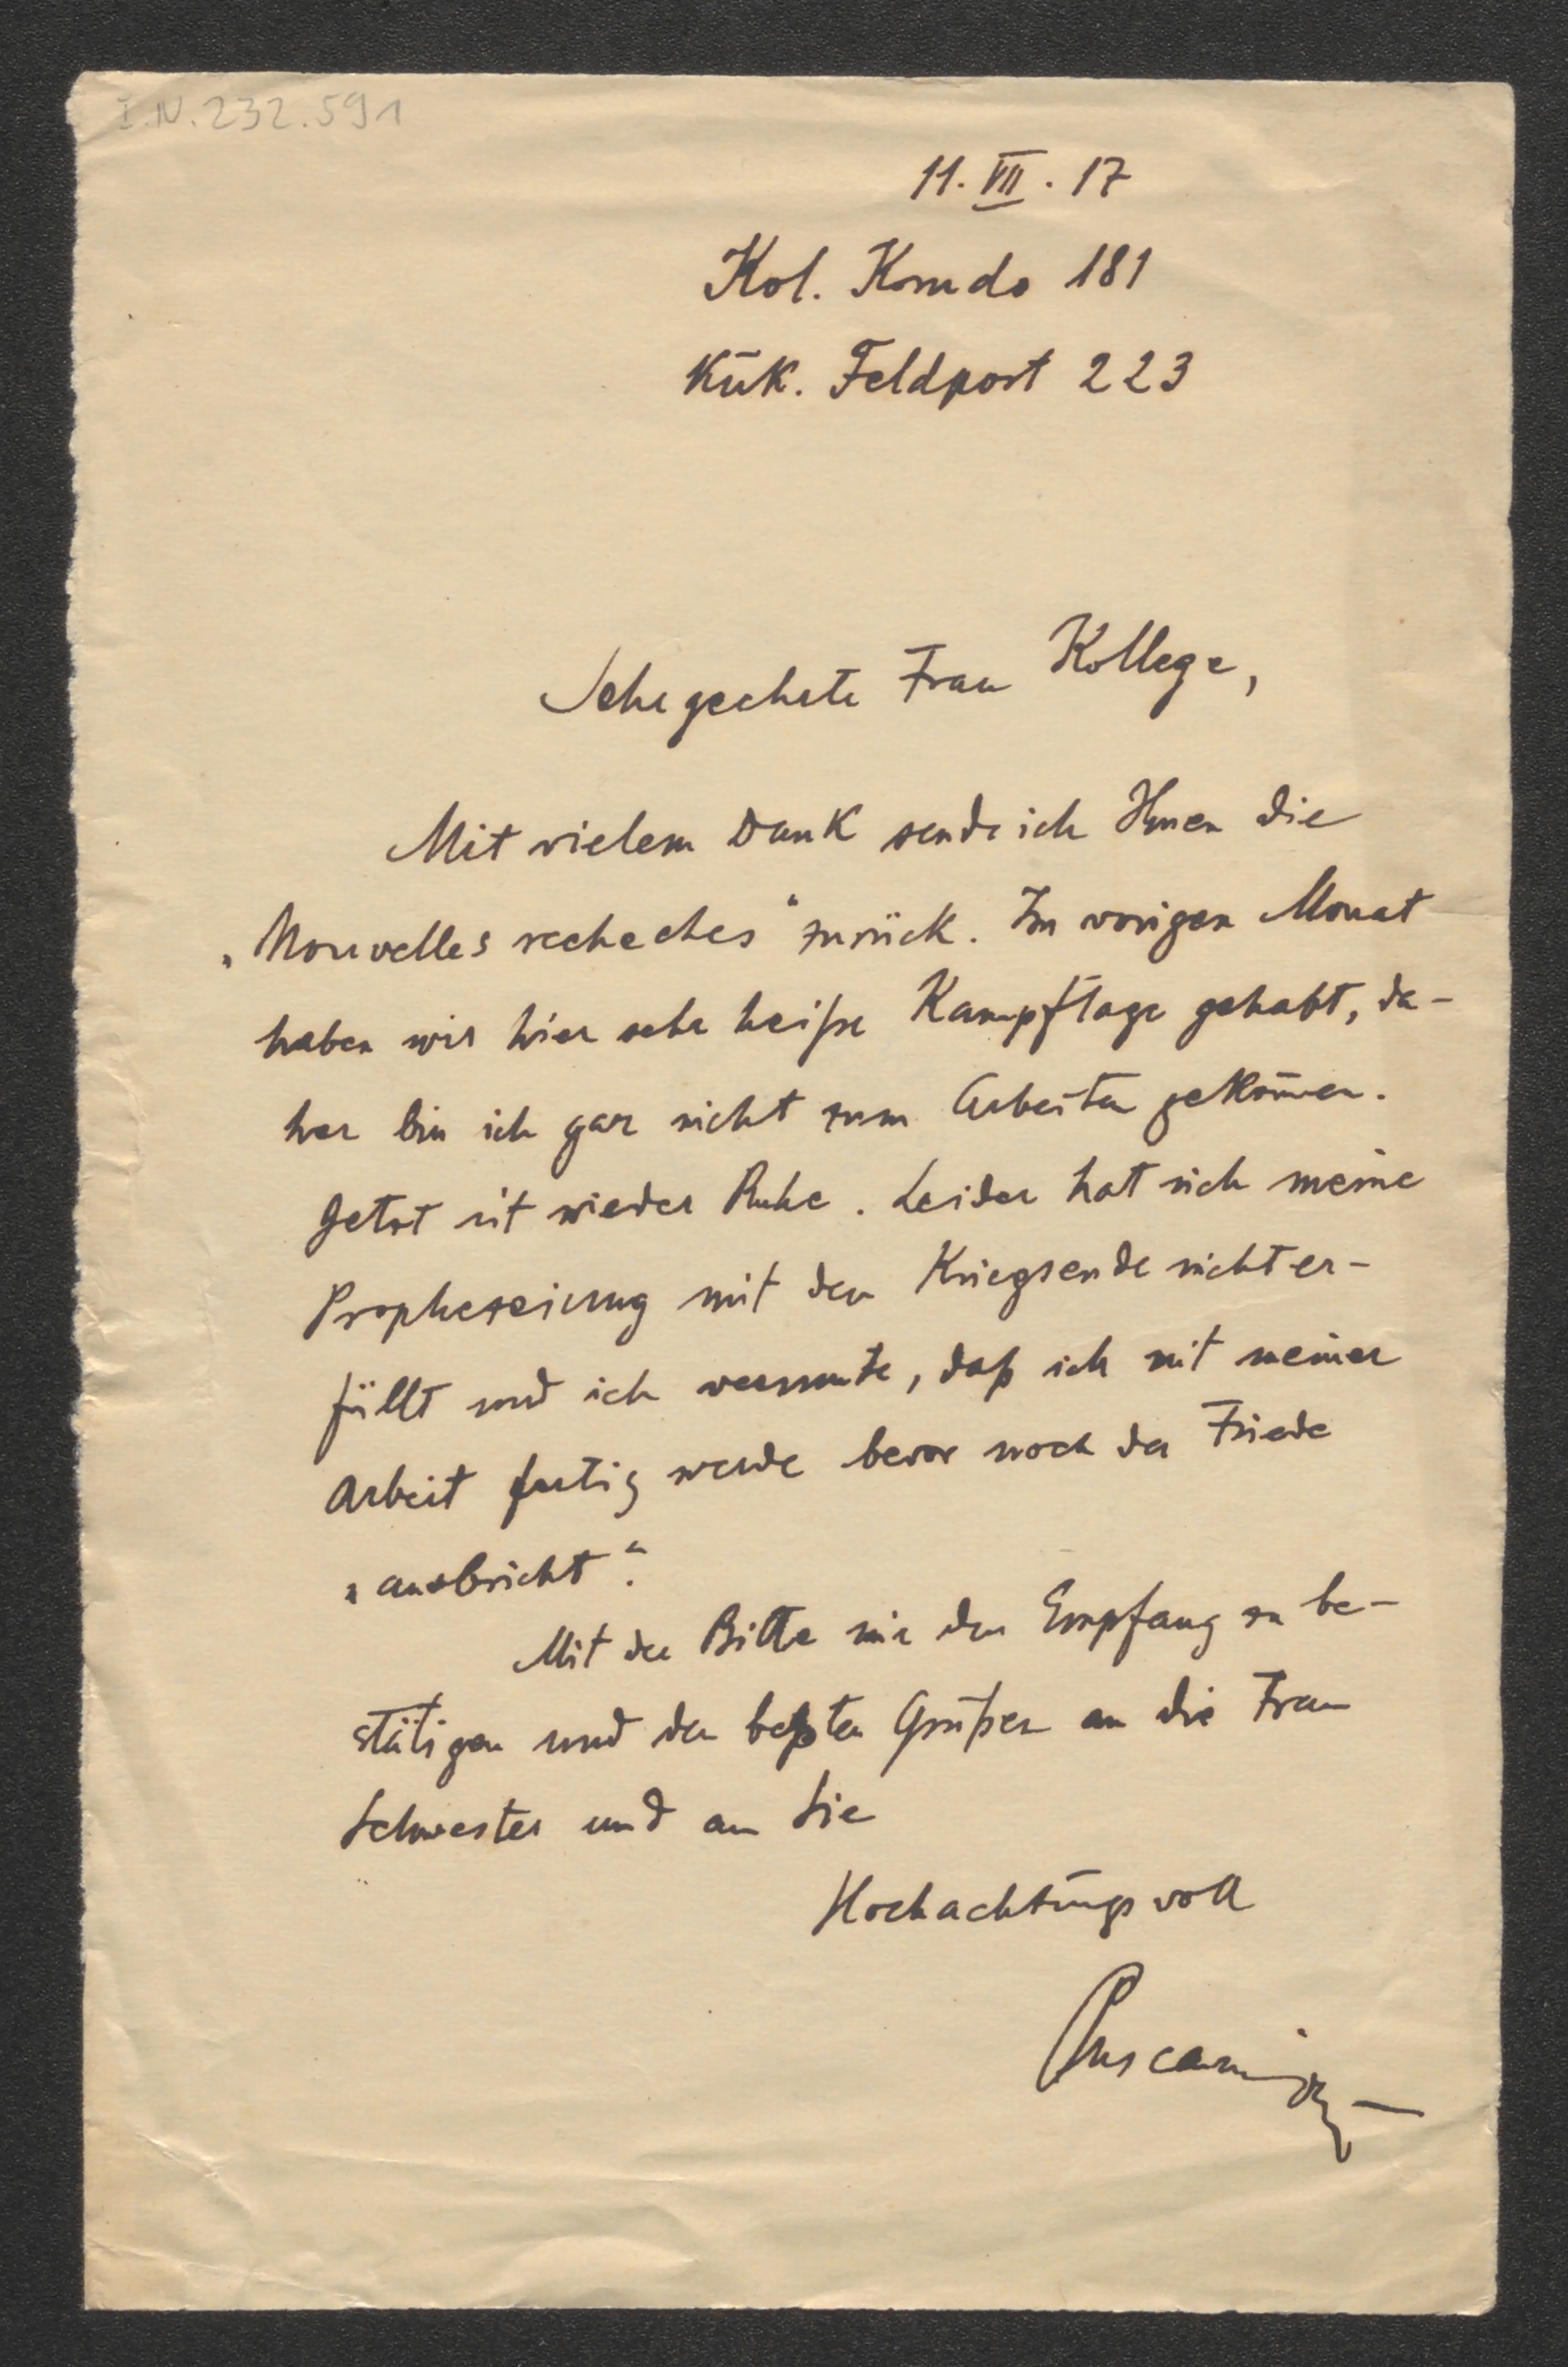 I.N. 232.591
11. VII. 17
Kol. Kmdo 181
KuK. Feldpost 223
Sehr geehrte Frau Kollege,
Mit vielem Dank sende ich Ihnen die
„Nouvelles recheches“ zurück. Im vorigen Monat
haben wir hier sehr heiße Kampftage gehabt, da-
her bin ich gar nicht zum Arbeiten gekom̅en.
Jetzt ist wieder Ruhe. Leider hat sich meine
Prophezeiung mit dem Kriegsende nicht er-
füllt und ich vermute, daß ich mit meiner
Arbeit fertig werde bevor noch der Friede
„ausbricht“.
Mit der Bitte mir den Empfang zu be-
stätigen und den beßten Grüßen an die Frau
Schwester und an Sie
Hochachtungsvoll